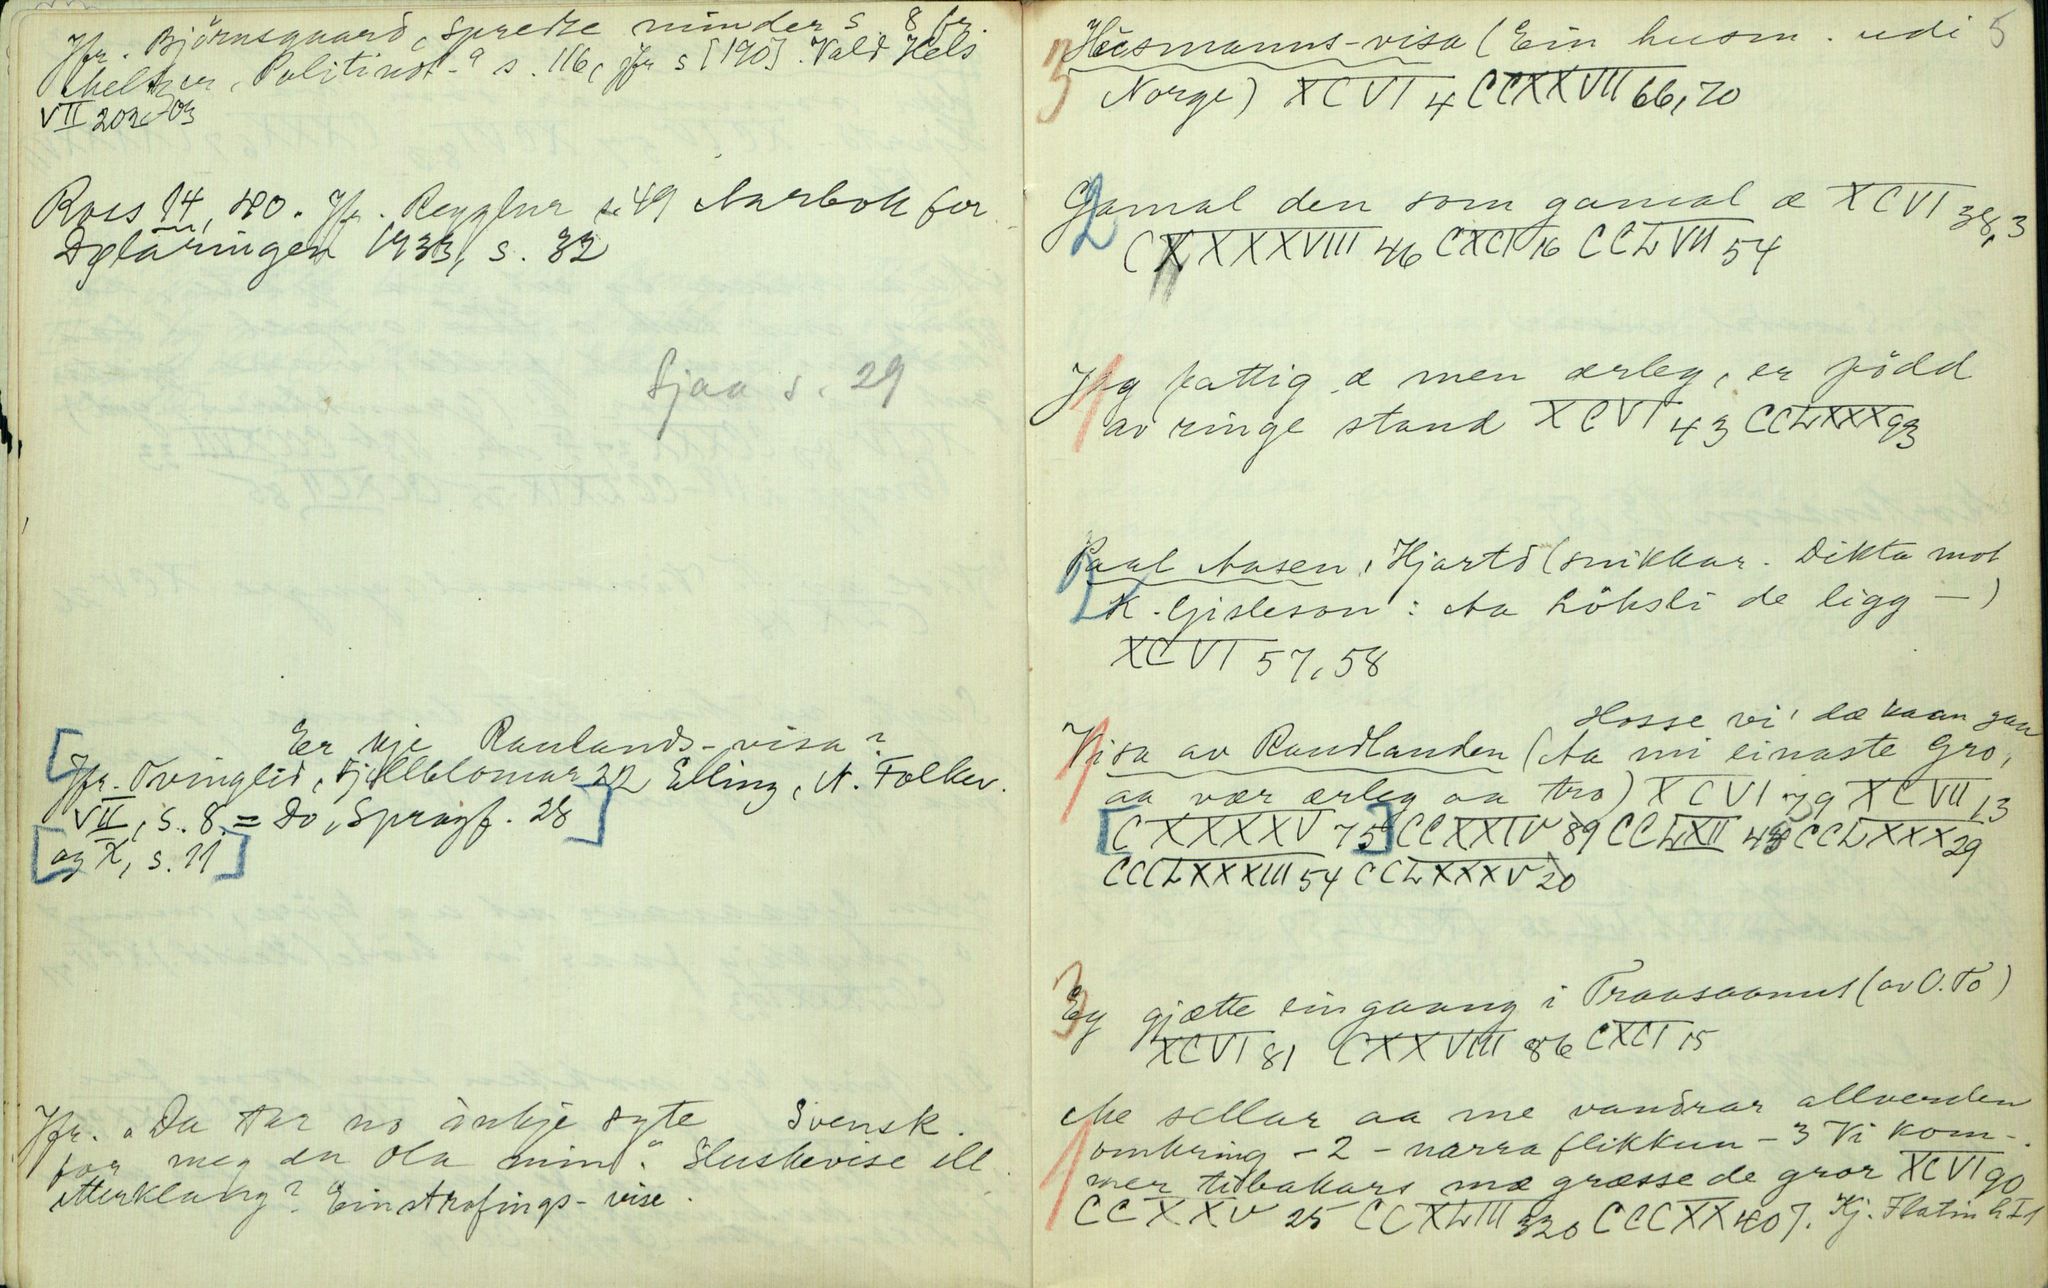 Jfr. Björnsgaard, spredte minder s. 8 fr.
Politivot-a s. 116, jfr s [190]. Vald Hels
VII 202, 203
Ross 14, 40. Jfr. Regglur s. 49 Aarbok for
Dølaringen 1933, s. 32
Sjaa s. 29
Er kje Raulands-visa?
Jfr. Tvinglid, Fjellblomar 22 Elling, N. Folkev.
VII, s. 8 = Do, Spragf. 28
og X, s. 11
Jfr. "Du tar no inkje syte Svensk.
for meg du Ola min". Huskevise ell.
etterklang? Einstrofings-vise.
5
3 Husmanns-visa (Ein husm. udi
Norge) XCVI 4 CCXXVII 66, 70
2 Gamal den som gamal æ XCVI 38, 3
CXXXXVIII 46 CXCI 16 CCLVII 54
1 Jeg fattig æ men ærleg, er född
av ringe stand XCVI 43 CCLXXX 93
2 Paal Aasen, Hjartd (snikkar. Dikta mot
K. Gisleson: Aa Höksli de ligg —)
XCVI 57, 58
Hosse vi' dæ kaan gaa
1 Visa av Raudlanden (Aa mi einaste Gro,
aa vær ærleg aa tro) XCVI 79 XCVII 13
[CXXXXV 75] CCXXIV 89 CCLXII 48 CCLXXX 29
CCCLXXXIII 54 CCLXXXV 20
3 Eg gjætte ein gaang i Traasaamut (av O. To)
XCVI 81 CXXVIII 86 CXCI 15
1 Me sellar aa me vandrar allverden
omkring – 2 – narra flikkun – 3 Vi kom-
mer tilbakars mæ græsse de gror XCVI 90
CCXXV 25 CCXLIII 320 CCCXX 407. Kj. Flatin h I 1